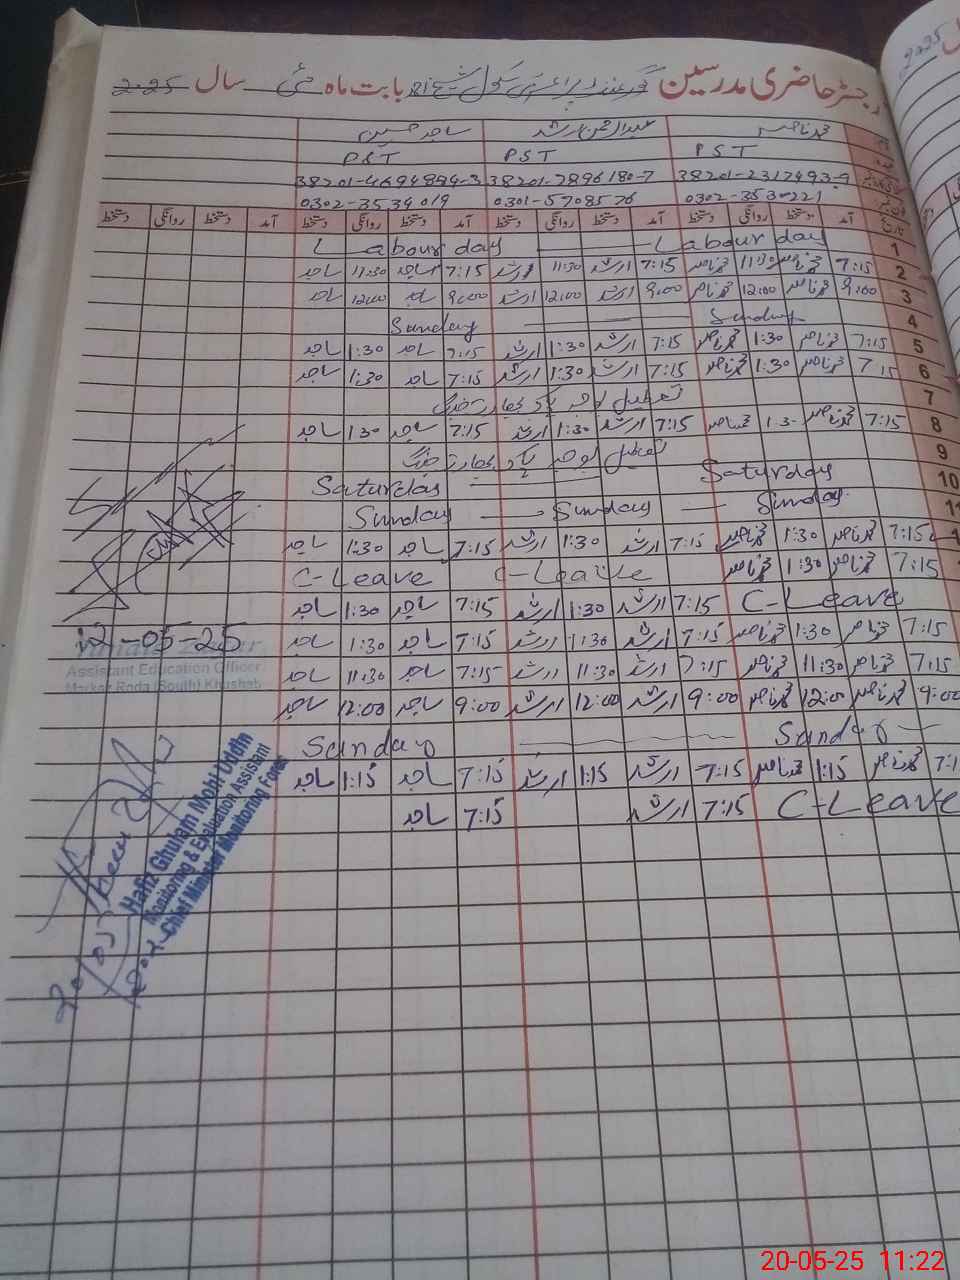 رجسٹر حاضری مدرسین گورنمنٹ پرائمری سکول بابت ماہ مئی سال 2025
2025
محمد ناصر عبدالرحمن ارشد ساجد حسین
PST PST PST
38201-2317493-9 38201-7896180-7 38201-4694894-3
0302-3530221 0301-5708576 0302-3534019
تاریخ آمد دستخط روانگی دستخط آمد دستخط روانگی دستخط آمد دستخط روانگی دستخط آمد دستخط روانگی دستخط
1 Labour day Labour day
2 7:15 محمد ناصر 11:30 محمد ناصر 7:15 ارشد 11:30 ارشد 7:15 ساجد 11:30 ساجد
3 9:00 محمد ناصر 12:00 محمد ناصر 9:00 ارشد 12:00 ارشد 9:00 ساجد 12:00 ساجد
4 Sunday Sunday
5 7:15 محمد ناصر 1:30 محمد ناصر 7:15 ارشد 1:30 ارشد 7:15 ساجد 1:30 ساجد
6 7:15 محمد ناصر 1:30 محمد ناصر 7:15 ارشد 1:30 ارشد 7:15 ساجد 1:30 ساجد
7 تعطیل بوجہ پاک بھارت جنگ
8 7:15 محمد ناصر 1:30 محمد ناصر 7:15 ارشد 1:30 ارشد 7:15 ساجد 1:30 ساجد
9 تعطیل بوجہ پاک بھارت جنگ
10 Saturday Saturday
11 Sunday Sunday Sunday
7:15 محمد ناصر 1:30 محمد ناصر 7:15 ارشد 1:30 ارشد 7:15 ساجد 1:30 ساجد
7:15 محمد ناصر 1:30 محمد ناصر C-Leave C-Leave
C-Leave 7:15 ارشد 1:30 ارشد 7:15 ساجد 1:30 ساجد
7:15 محمد ناصر 1:30 محمد ناصر 7:15 ارشد 1:30 ارشد 7:15 ساجد 1:30 ساجد
7:15 محمد ناصر 11:30 محمد ناصر 7:15 ارشد 11:30 ارشد 7:15 ساجد 11:30 ساجد
9:00 محمد ناصر 12:00 محمد ناصر 9:00 ارشد 12:00 ارشد 9:00 ساجد 12:00 ساجد
Sunday Sunday
7:1 محمد ناصر 1:15 محمد ناصر 7:15 ارشد 1:15 ارشد 7:15 ساجد 1:15 ساجد
C-Leave 7:15 ارشد 7:15 ساجد
12-05-25
Assistant Education Officer
Markaz Roda (South) Khushab
Hafiz Ghulam Mohi Uddin
Monitoring & Evaluation Assistant
Chief Minister Monitoring Force
20-05-25 11:22